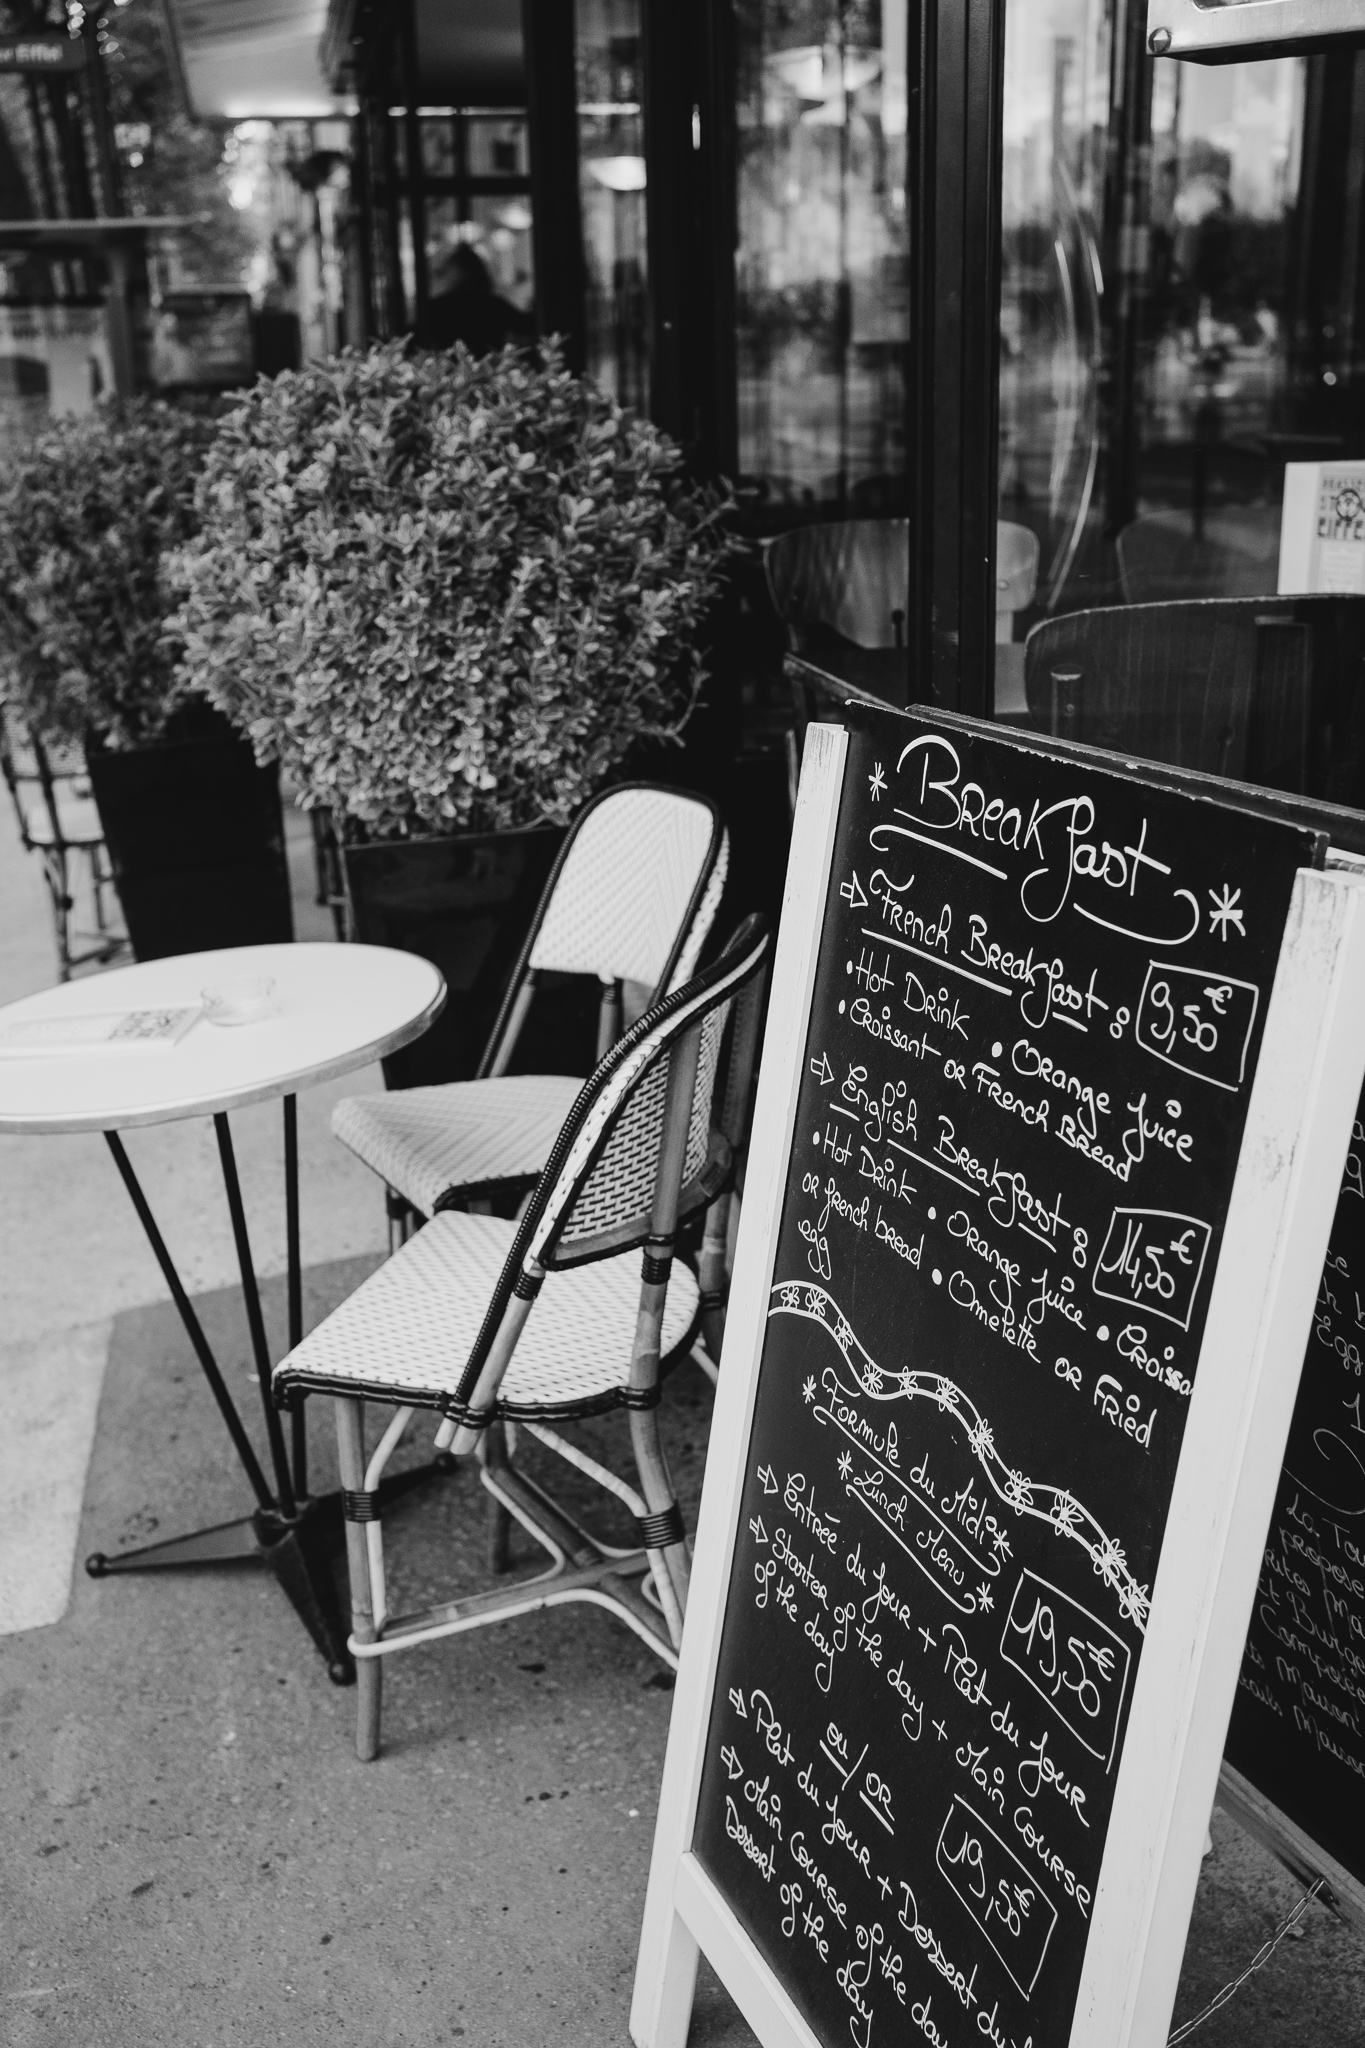 Eiffel
EIFFEL
BreakFast
French BreakFast : 9,50€
• Hot Drink • Orange Juice
• Croissant or French Bread
English BreakFast : 14,50€
• Hot Drink • Orange Juice • Croissa
or french bread • Ommelette or Fried
egg
Formule du Midi
Lunch Menu
Entrée du jour + Plat du Jour 19,50€
Starter of the day + Main Course
of the day
ou / OR
Plat du Jour + Dessert du 19,50€
Main Course of the day
Dessert of the day